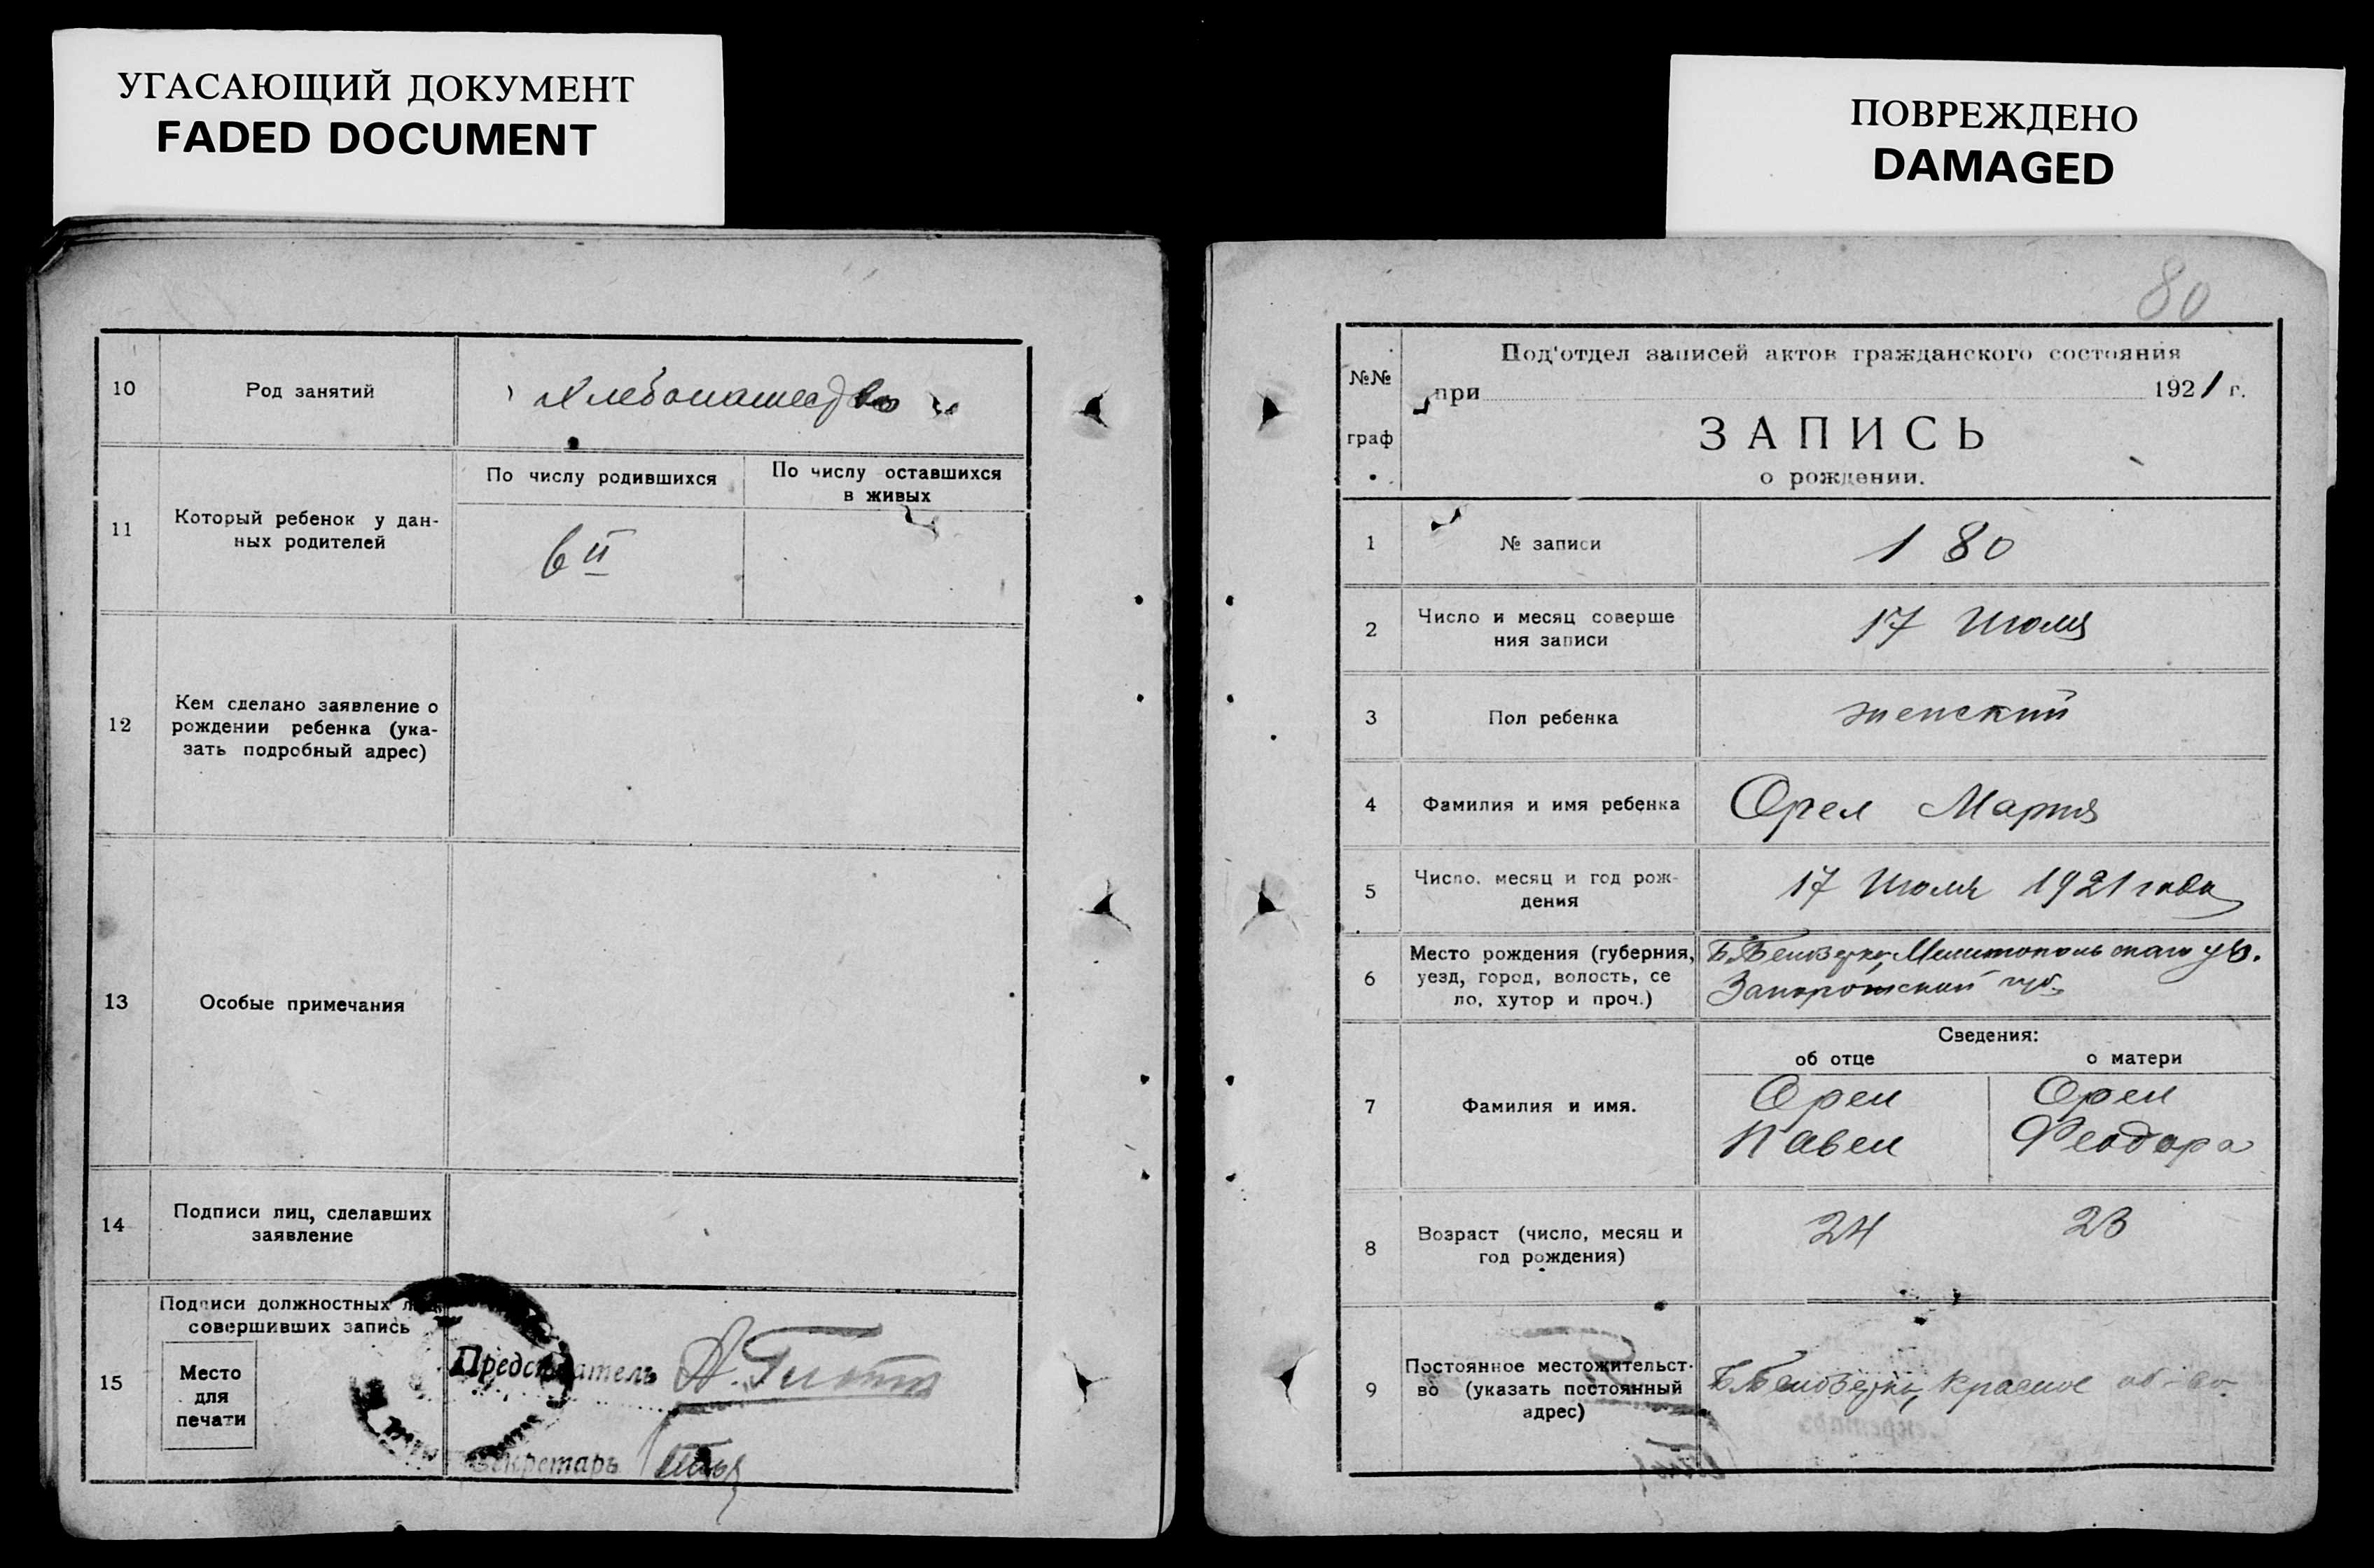 УГАСАЮЩИЙ ДОКУМЕНТ
FADED DOCUMENT
10
Род занятий
Хлебопашество
11
Который ребенок у дан-
ных родителей
По числу родившихся
По числу оставшихся
в живых
6й
12
Кем сделано заявление о
рождении ребенка (ука-
зать подробный адрес)
13
Особые примечания
14
Подписи лиц, сделавших
заявление
15
Подписи должностных лиц
совершивших запись
Место
для
печати
Председатель
Секретарь
ПОВРЕЖДЕНО
DAMAGED
80
№№
граф
Под'отдел записей актов гражданского состояния
при 1921 г.
ЗАПИСЬ
о рождении.
1
№ записи
180
2
Число и месяц соверше
ния записи
17 Июля
3
Пол ребенка
женский
4
Фамилия и имя ребенка
Орел Мария
5
Число, месяц и год рож-
дения
17 Июля 1921 года
6
Место рождения (губерния,
уезд, город, волость, се
ло, хутор и проч.)
Б. Белозерка, Мелитопольскаго уез.
Запорожской губ.
Сведения:
об отце
о матери
7
Фамилия и имя.
Орел
Павел
Орел
Феодора
8
Возраст (число, месяц и
год рождения)
24
23
9
Постоянное местожительст-
во (указать постоянный
адрес)
Б. Белозерка, Красное об-во